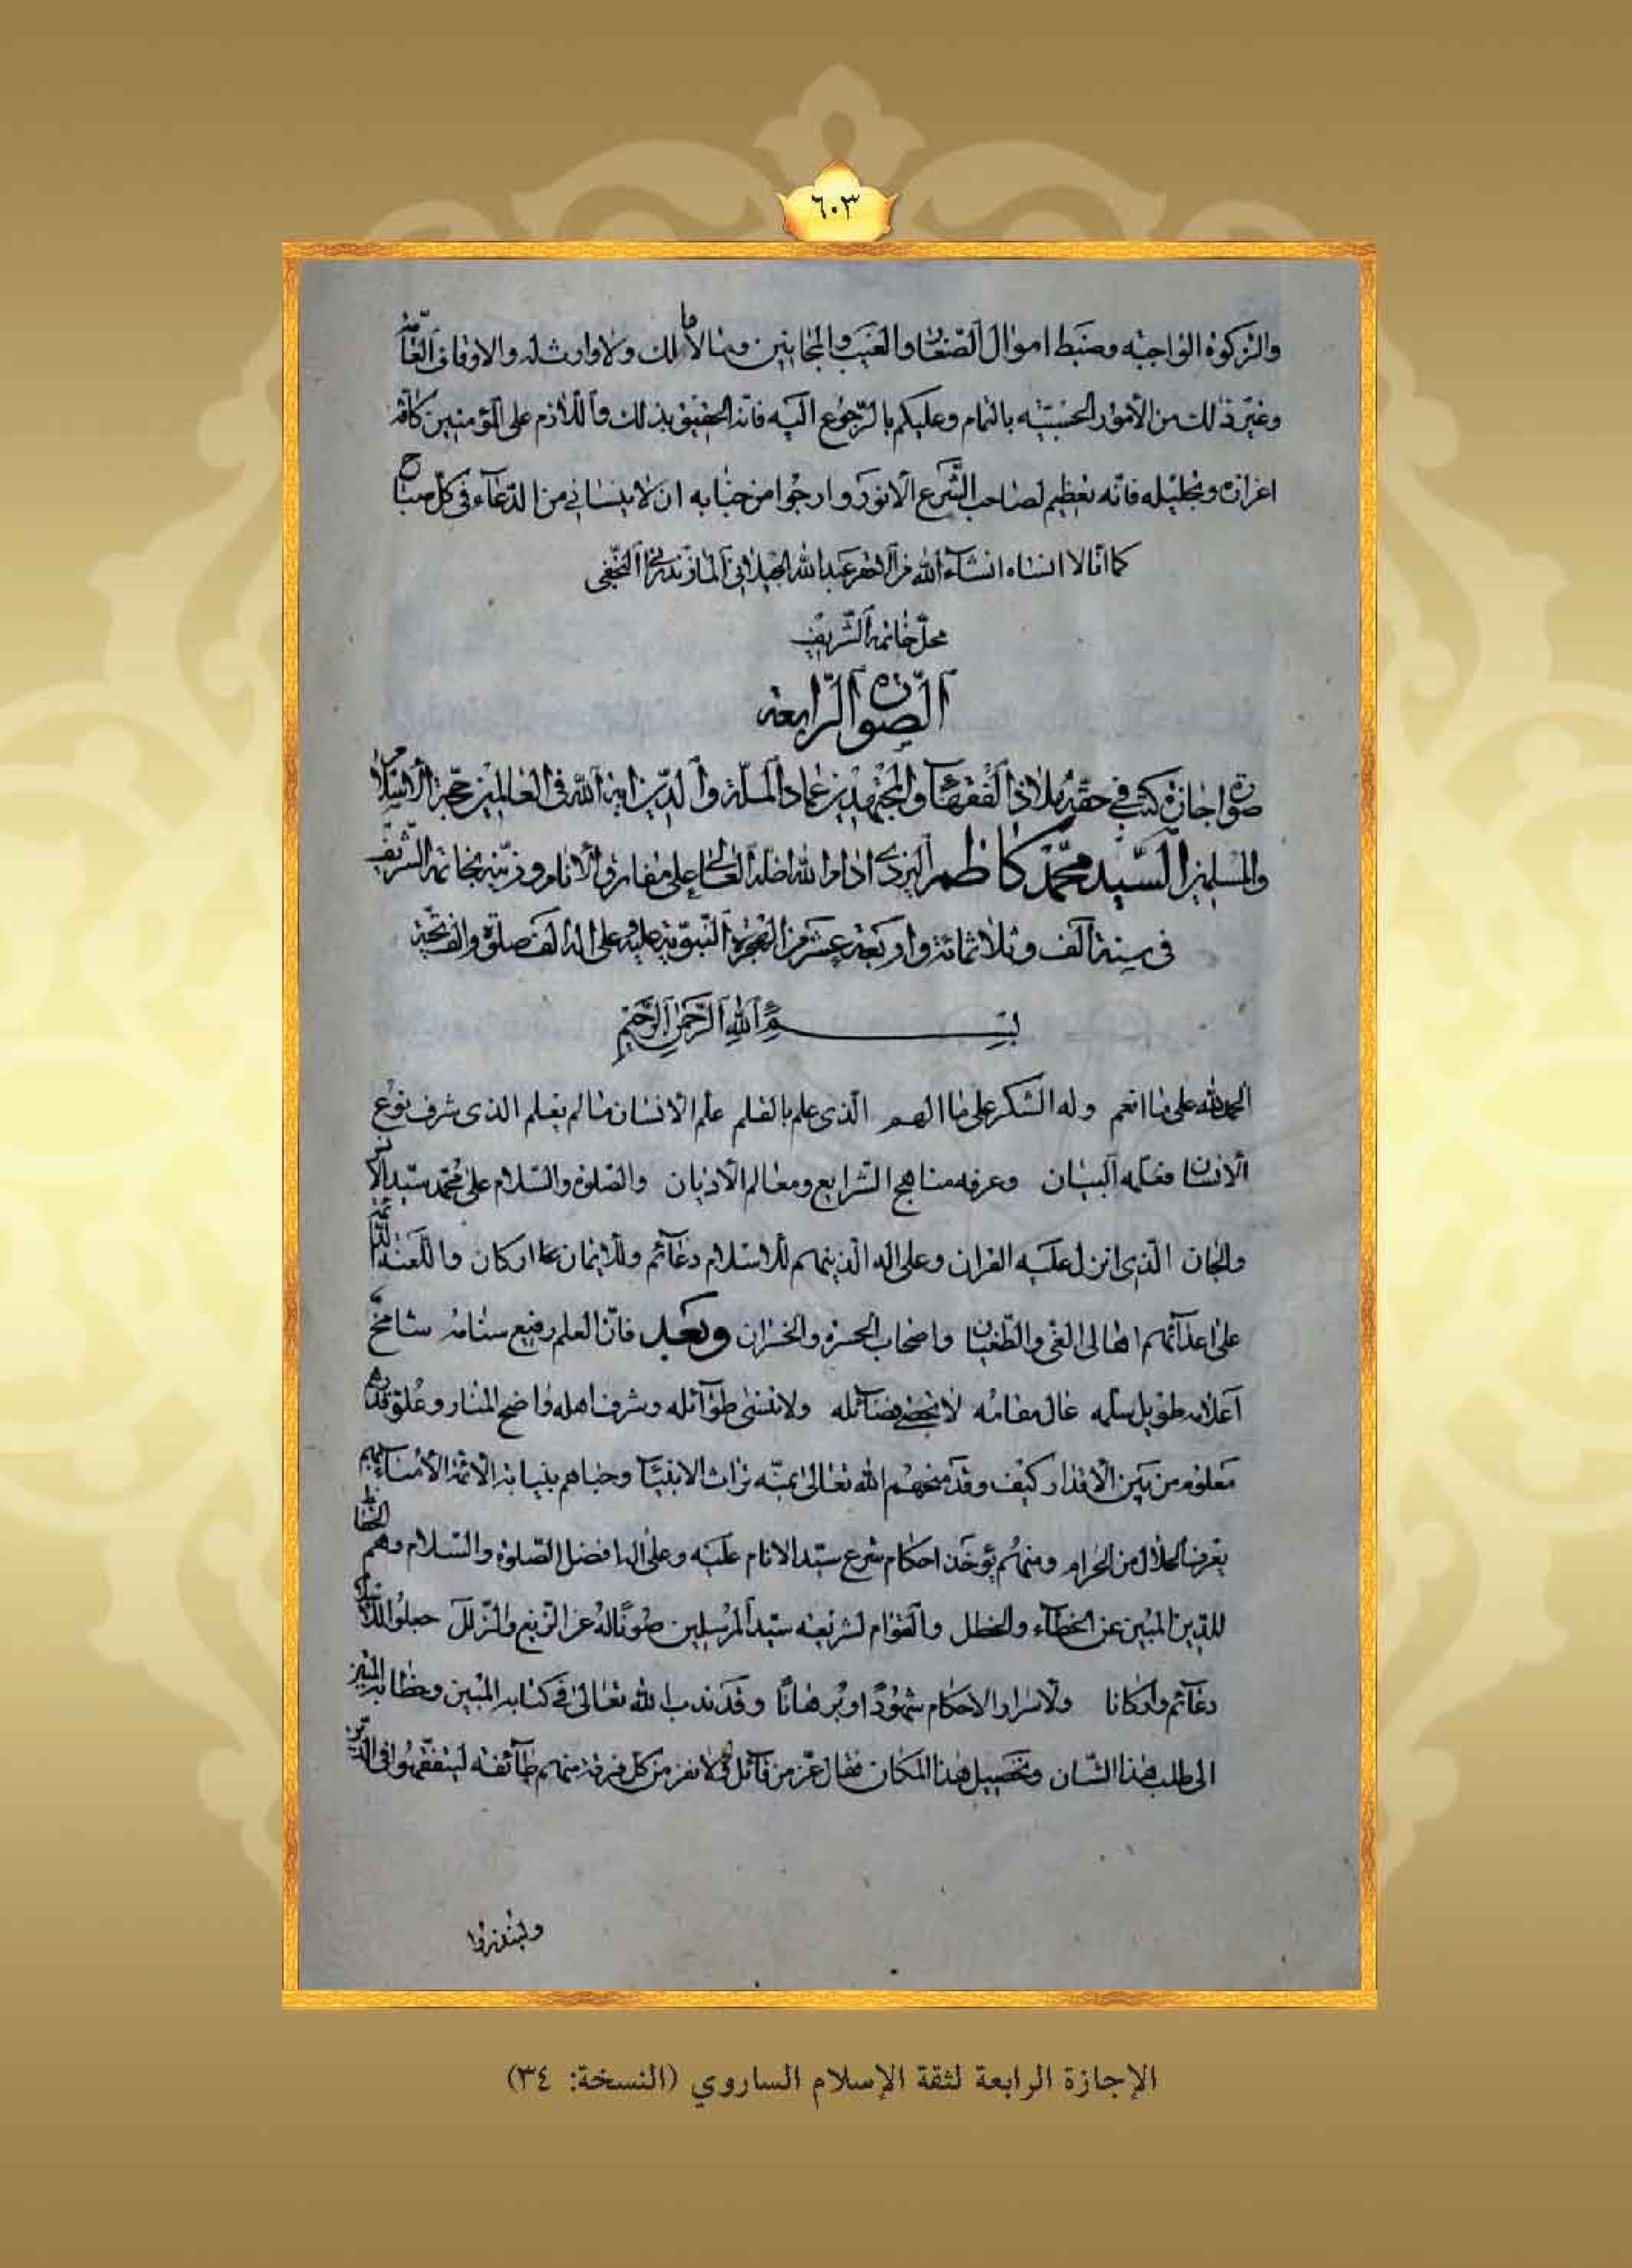 ٦٠٣
والزكوة الواجبه وضبط اموال الصغار والغيب والمجانين وما لا مالك ولا وارث له والاوقاف العامّة
وغير ذلك من الأمور الحسبيّه بالتمام وعليكم بالرّجوع اليه فانه الحقيق بذلك واللازم على المؤمنين كافّة
اعزازه وتجليله فانّه تعظيم لصاحب الشّرع الانور وارجوا من جنابه ان لا ينساني من الدّعاء في كلّ صباح
كما انا لا انساه انشاء الله من الاحقر عبد الله الجيلاني المازندراني النّجفي
محلّ خاتمه الشّريف
الصّورة الرّابعة
صورة اجازة كتب في حقّه ملاذ الفقهاء والمجتهدين عماد الملّة والدّين اية الله في العالمين حجّة الاسلام
والمسلمين السّيد محمّد كاظم اليزدي ادام الله اظلاله العالي على مفارق الانام وزيّنه بخاتمه الشّريف
في سنة الف وثلاثمائة واربعة عشر من الهجرة النّبويّة عليه وعلى اله الف صلوة والف تحيّة
بسم الله الرّحمن الرّحيم
الحمد لله على ما انعم وله الشكر على ما الهم الّذي علم بالقلم علم الانسان ما لم يعلم الذي شرف نوع
الانسان فعلّمه البيان وعرفه مناهج الشّرايع ومعالم الاديان والصّلوة والسّلام على محمّد سيّد الانس
والجان الّذي انزل عليه القران وعلى اله الّذين هم للاسلام دعائم وللايمان اركان واللعنة
على اعدائهم اهالي الغي والطّغيان واصحاب الحسرة والخسران وبعد فانّ العلم رفيع سنامه شامخ
اعلامه طويل سلّمه عال مقامه لا تحصى فضائله ولا تنسى طوائله وشرف اهله واضح المنار وعلوّ قدرهم
معلوم من بين الاقدار كيف وقد منحهم الله تعالى بمنّه تراث الانبياء وحباهم بنيابة الائمّة الأمناء بهم
يعرف الحلال من الحرام ومنهم يؤخذ احكام شرع سيّد الانام عليه وعلى اله افضل الصّلوة والسّلام وهم الحفّاظ
للدّين المبين عن الخطاء والخطل والقوام لشريعة سيّد المرسلين صونًا له عن الزّيغ والزّلل جعلوا
دعائم واركانا ولاسرار الاحكام شهودًا وبرهانًا وقد ندب الله تعالى في كتابه المبين وخطابه المتين
الى طلب هذا الشّان وتحصيل هذا المكان فقال عزّ من قائل فلولا نفر من كلّ فرقة منهم طائفة ليتفقّهوا في الدّين
ولينذروا
الإجازة الرابعة لثقة الإسلام الساروي (النسخة: ٣٤)